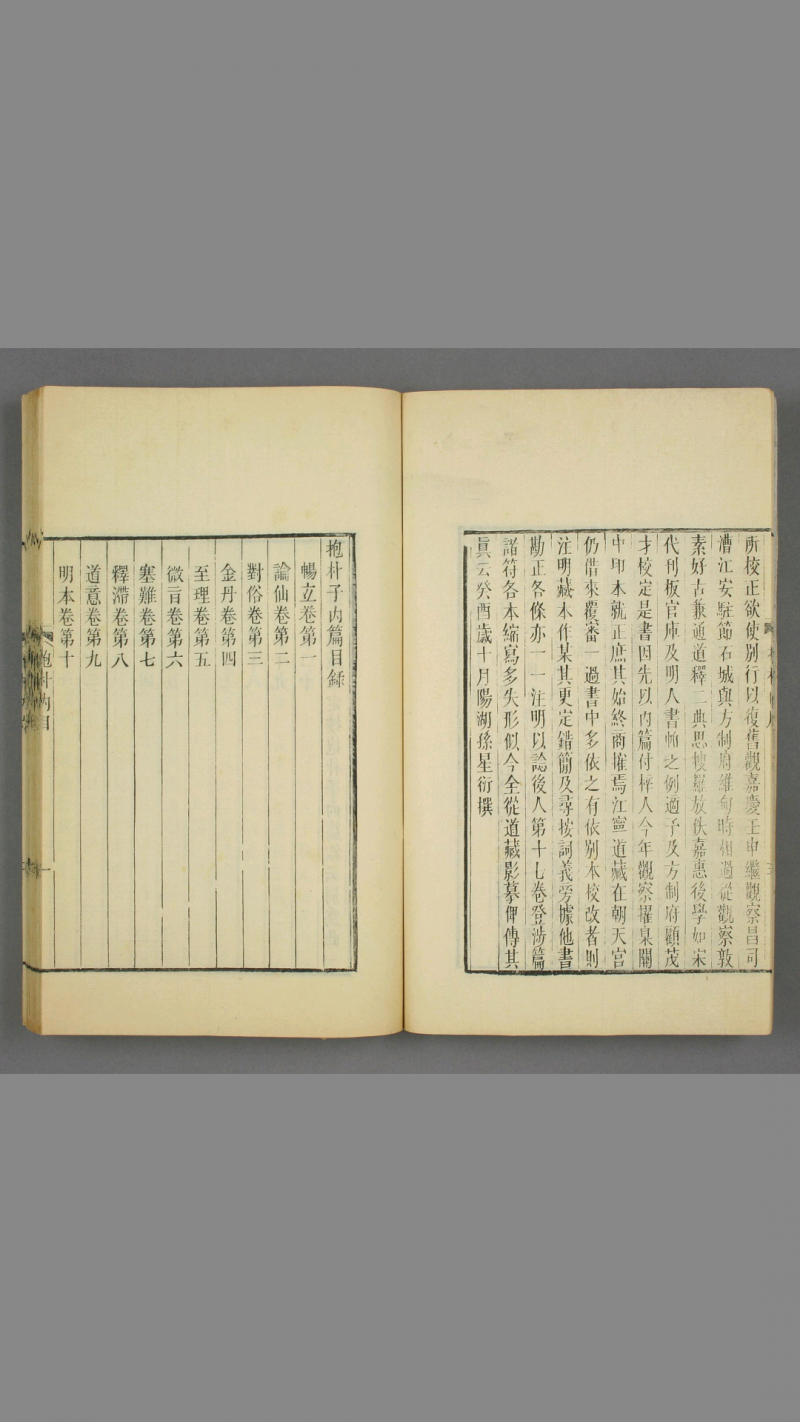 所校正欲使別行以復舊觀嘉慶壬申繼觀察昌司
漕江安駐節石城與方制府維甸時相過從觀察敦
素好古兼通道釋二典思摟羅放佚嘉惠後學如宋
代刊板官庫及明人書帕之例適予及方制府顧茂
才校定是書因先以內篇付梓人今年觀察擢臬關
中印本就正庶其始終商搉焉江寧道藏在朝天宮
仍借來覆審一過書中多依之有依別本校改者則
注明藏本作某其更定錯簡及尋按詞義旁據他書
勘正各條亦一一注明以諗後人第十七卷登涉篇
諸符各本縮寫多失形似今全從道藏影摹俾傳其
眞云癸酉歲十月陽湖孫星衍撰
抱朴子內篇目錄
暢立卷第一
論仙卷第二
對俗卷第三
金丹卷第四
至理卷第五
微言卷第六
塞難卷第七
釋滯卷第八
道意卷第九
明本卷第十
抱朴內目
一